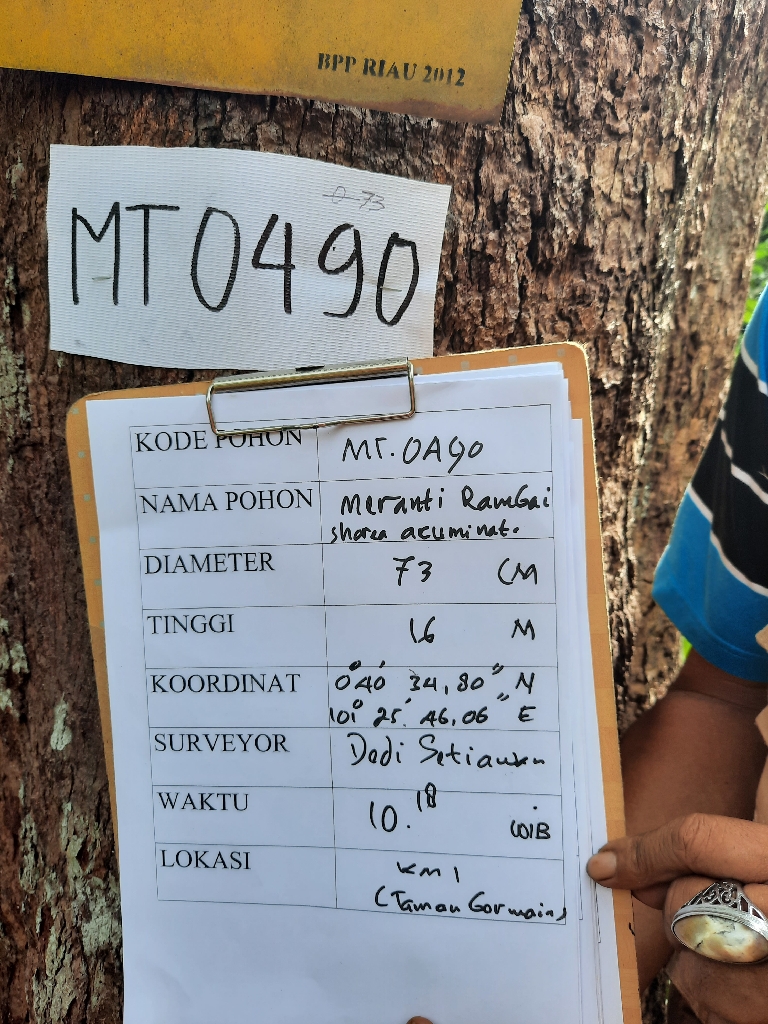 BPP RIAU 2012
0-73
MT0490
KODE POHON MT.0490
NAMA POHON Meranti Rambai
shorea acuminat.
DIAMETER 73 CM
TINGGI 16 M
KOORDINAT 0° 40' 34,80" N
101° 25' 46,06" E
SURVEYOR Dodi Setiawan
WAKTU 10.18 WIB
LOKASI KM 1
(Taman Germains